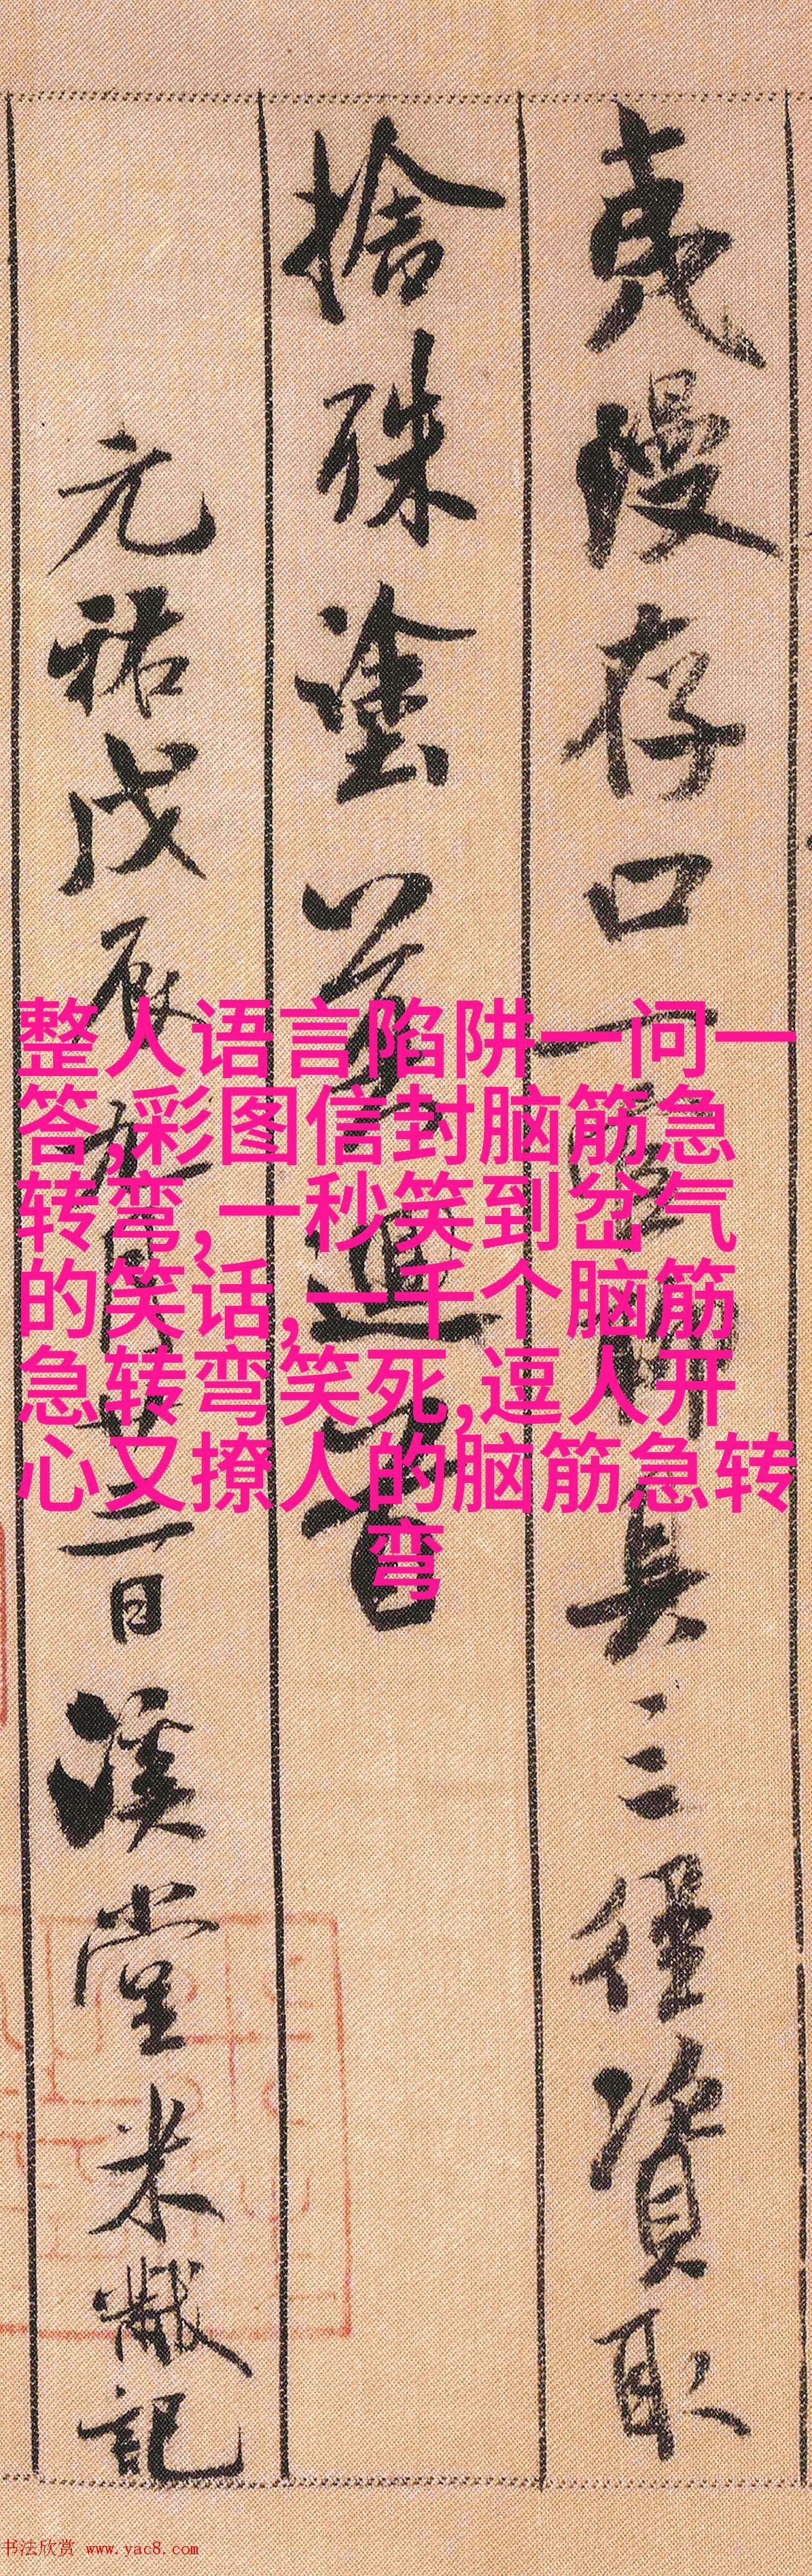 夷漫存口一具三徑資取
捨殊塗首
元祐戊辰九月廿三日溪堂米黻記
整人语言陷阱一问一
答,彩图信封脑筋急
转弯,一秒笑到岔气
的笑话,一千个脑筋
急转弯笑死,逗人开
心又撩人的脑筋急转
弯
书法欣赏 www.yac8.com